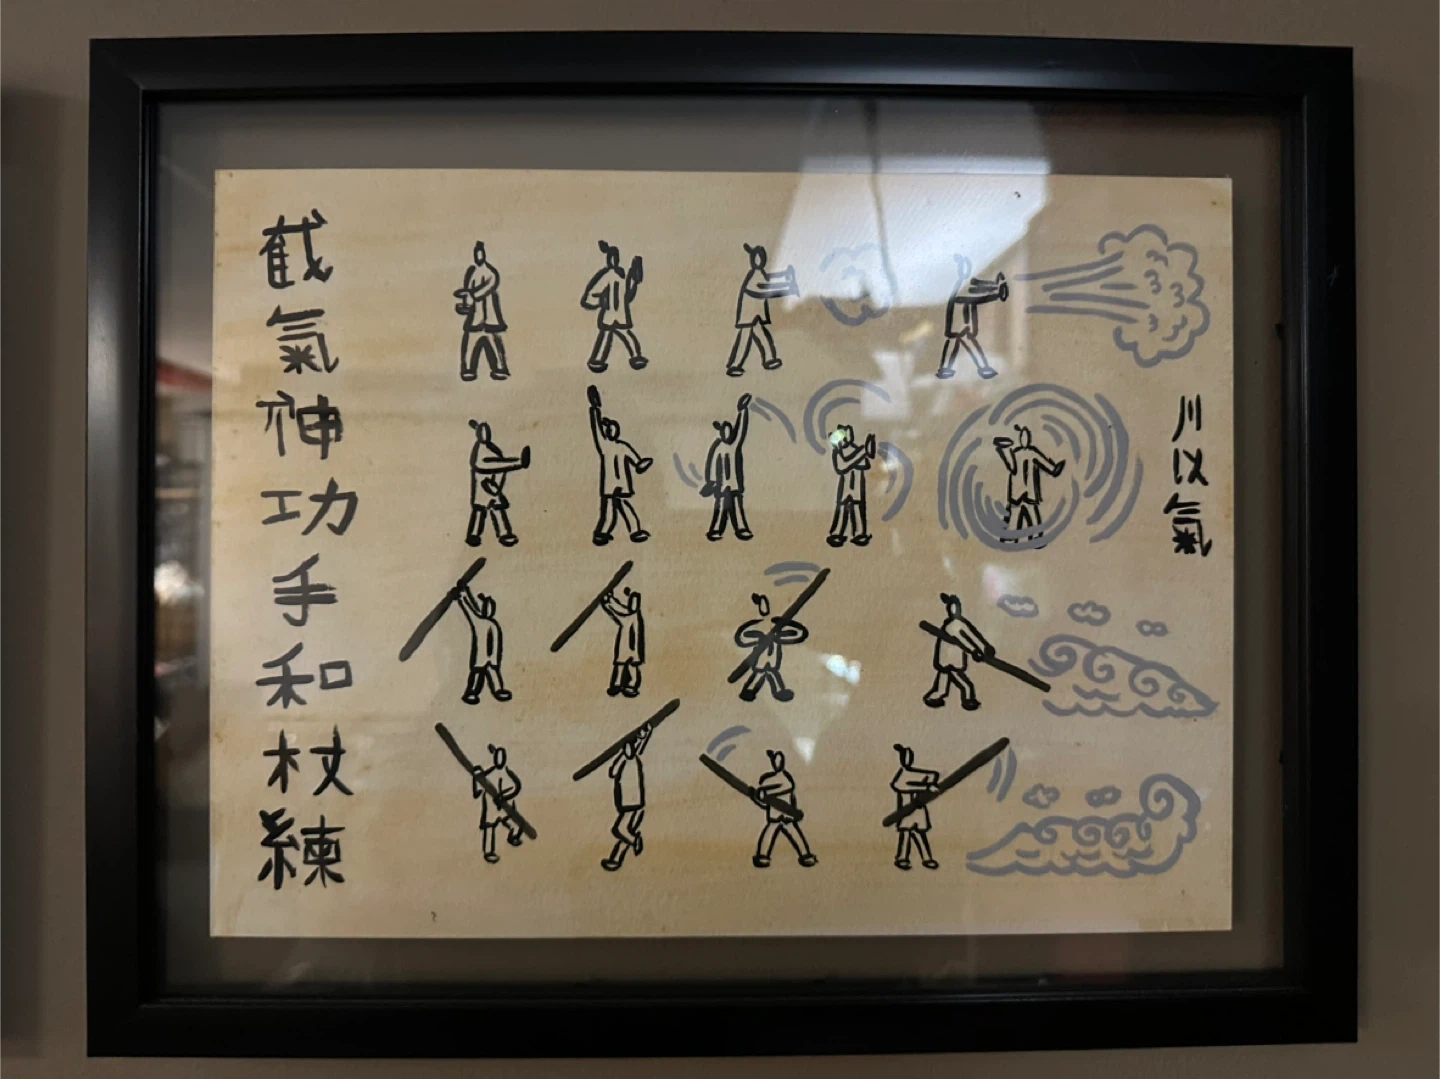 截氣神功手和杖練
川以氣